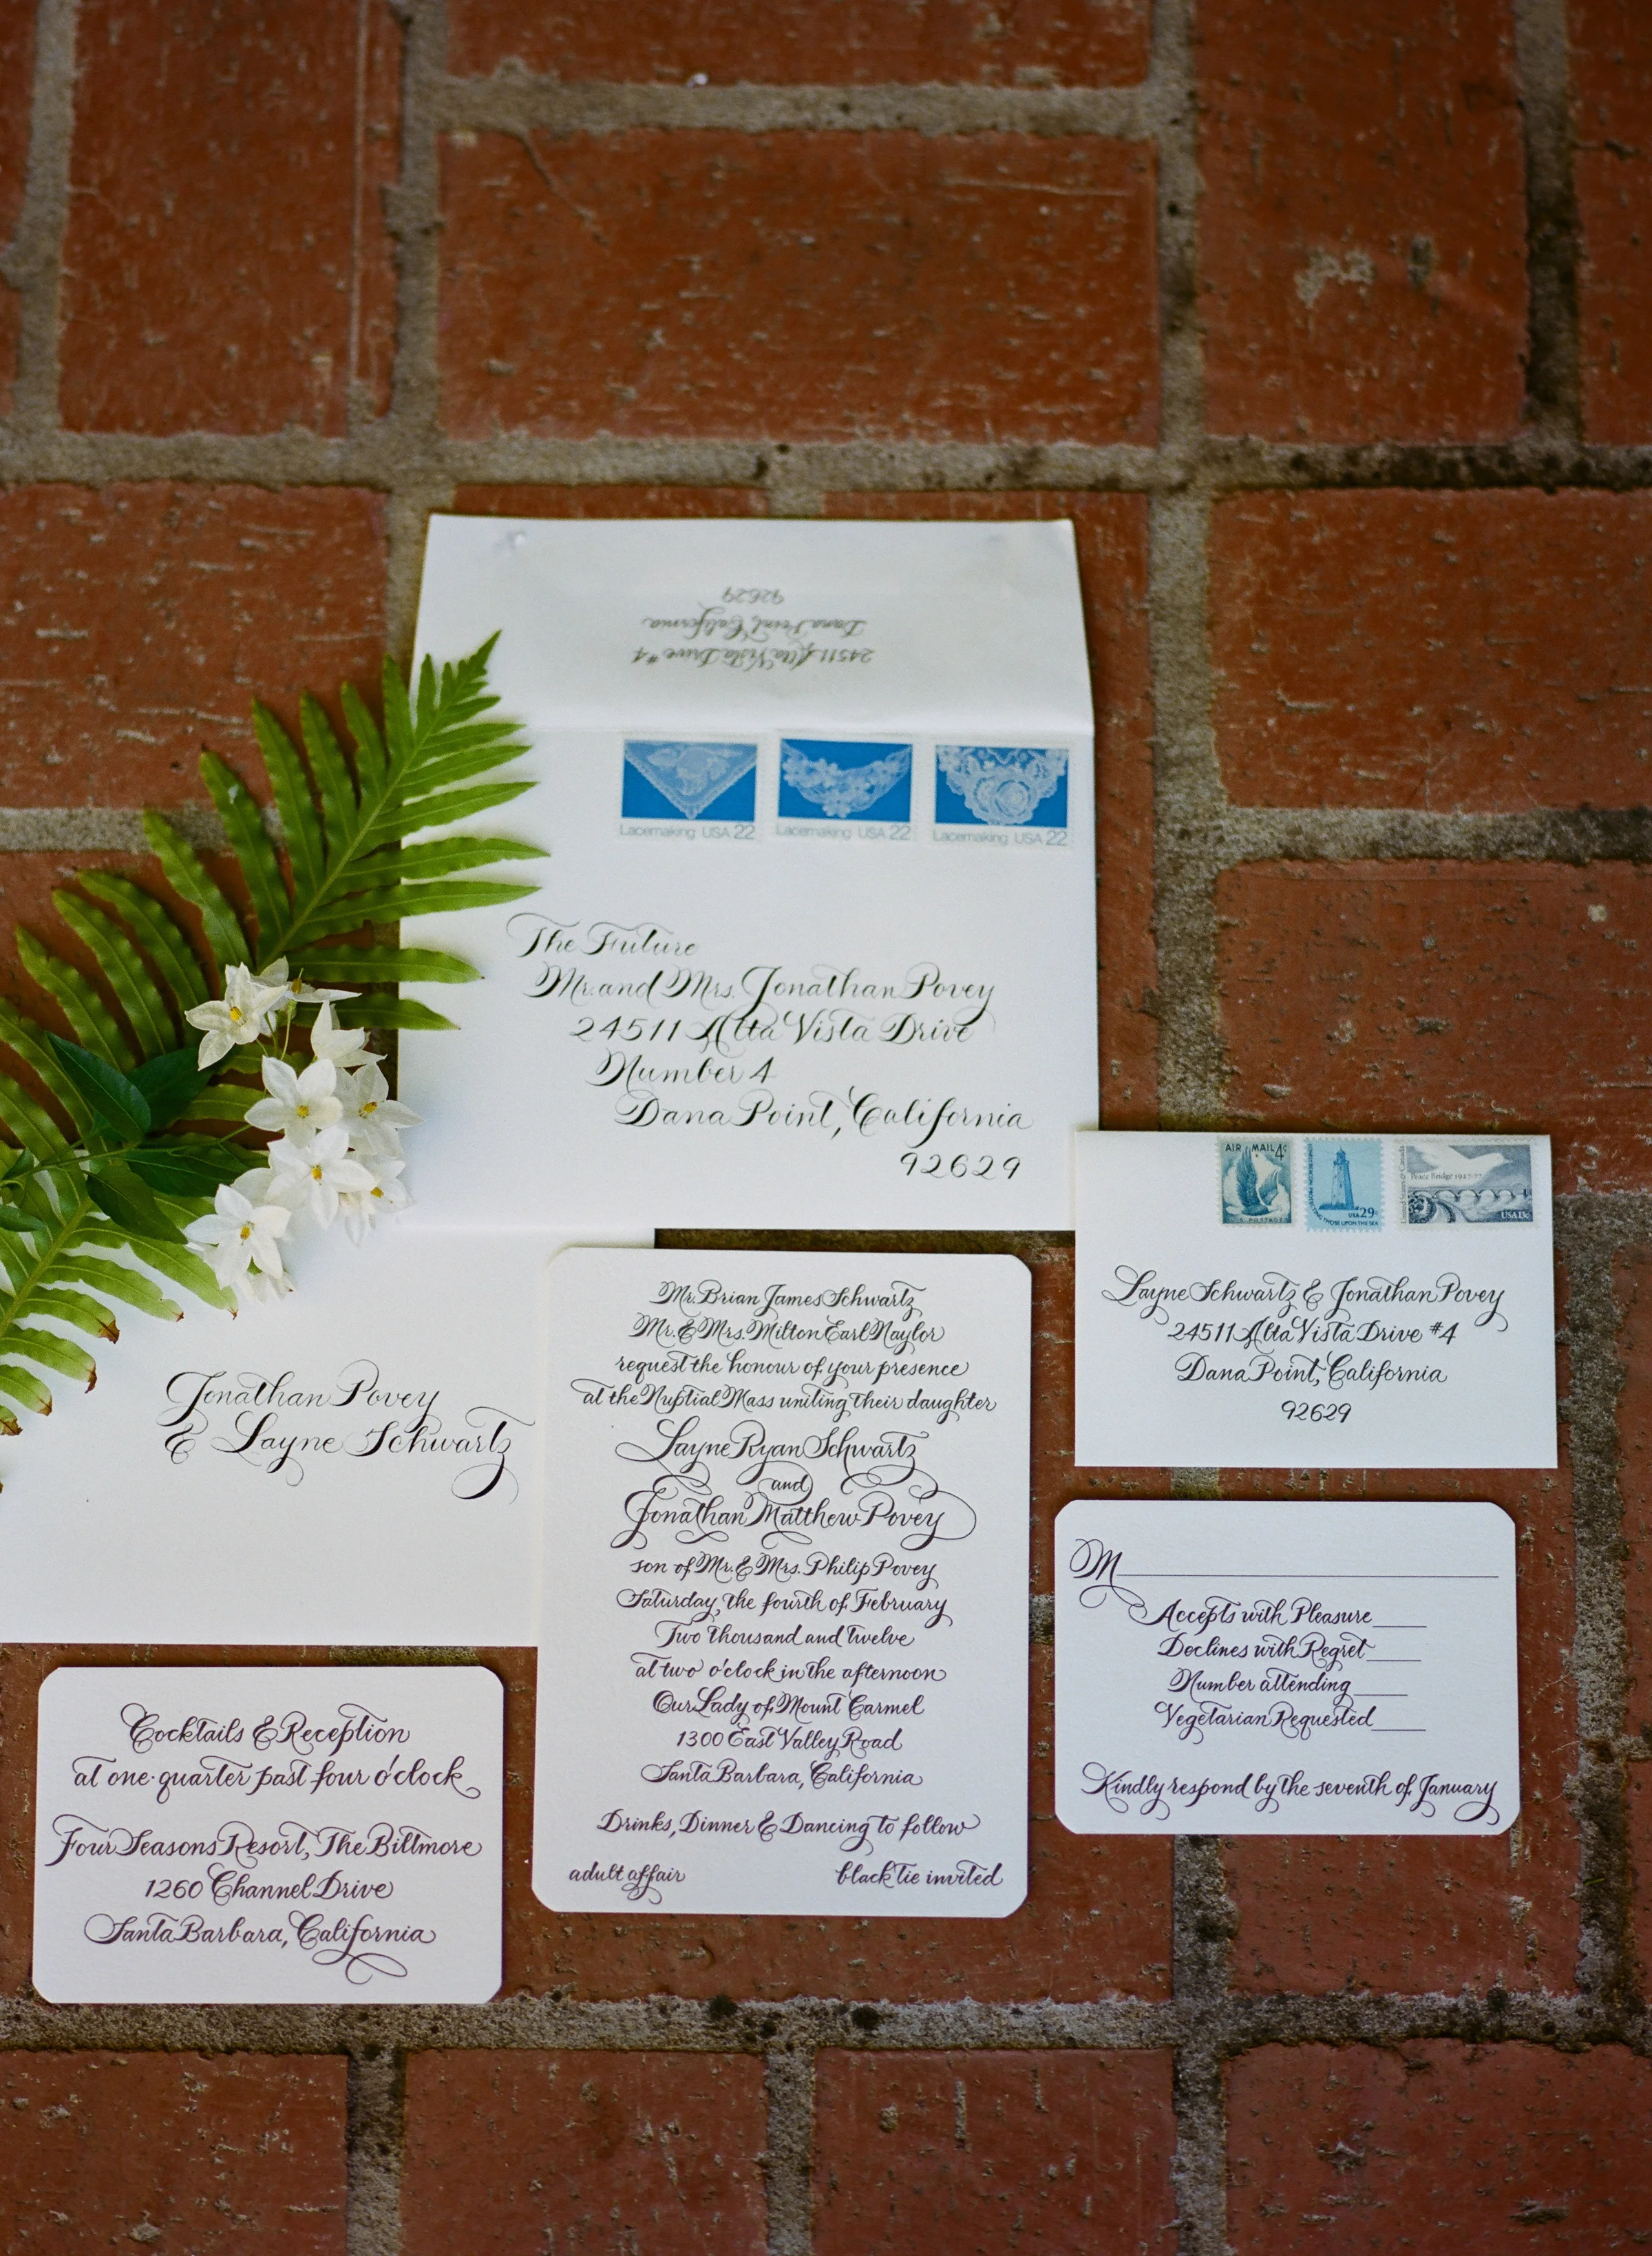 24511 Alta Vista Drive #4
Dana Point, California
92629
Lacemaking USA 22
Lacemaking USA 22
Lacemaking USA 22
The Future
Mr. and Mrs. Jonathan Povey
24511 Alta Vista Drive
Number 4
Dana Point, California
92629
AIR MAIL 4¢
U S POSTAGE
USA 29c
Peace Bridge 1927-77
USA 13c
Layne Schwartz & Jonathan Povey
24511 Alta Vista Drive #4
Dana Point, California
92629
Jonathan Povey
& Layne Schwartz
Mr. Brian James Schwartz
Mr. & Mrs. Milton Earl Naylor
request the honour of your presence
at the Nuptial Mass uniting their daughter
Layne Ryan Schwartz
and
Jonathan Matthew Povey
son of Mr. & Mrs. Philip Povey
Saturday, the fourth of February
Two thousand and twelve
at two o'clock in the afternoon
Our Lady of Mount Carmel
1300 East Valley Road
Santa Barbara, California
Drinks, Dinner & Dancing to follow
adult affair
black tie invited
M
Accepts with Pleasure
Declines with Regret
Number attending
Vegetarian Requested
Kindly respond by the seventh of January
Cocktails & Reception
at one-quarter past four o'clock
Four Seasons Resort, The Biltmore
1260 Channel Drive
Santa Barbara, California